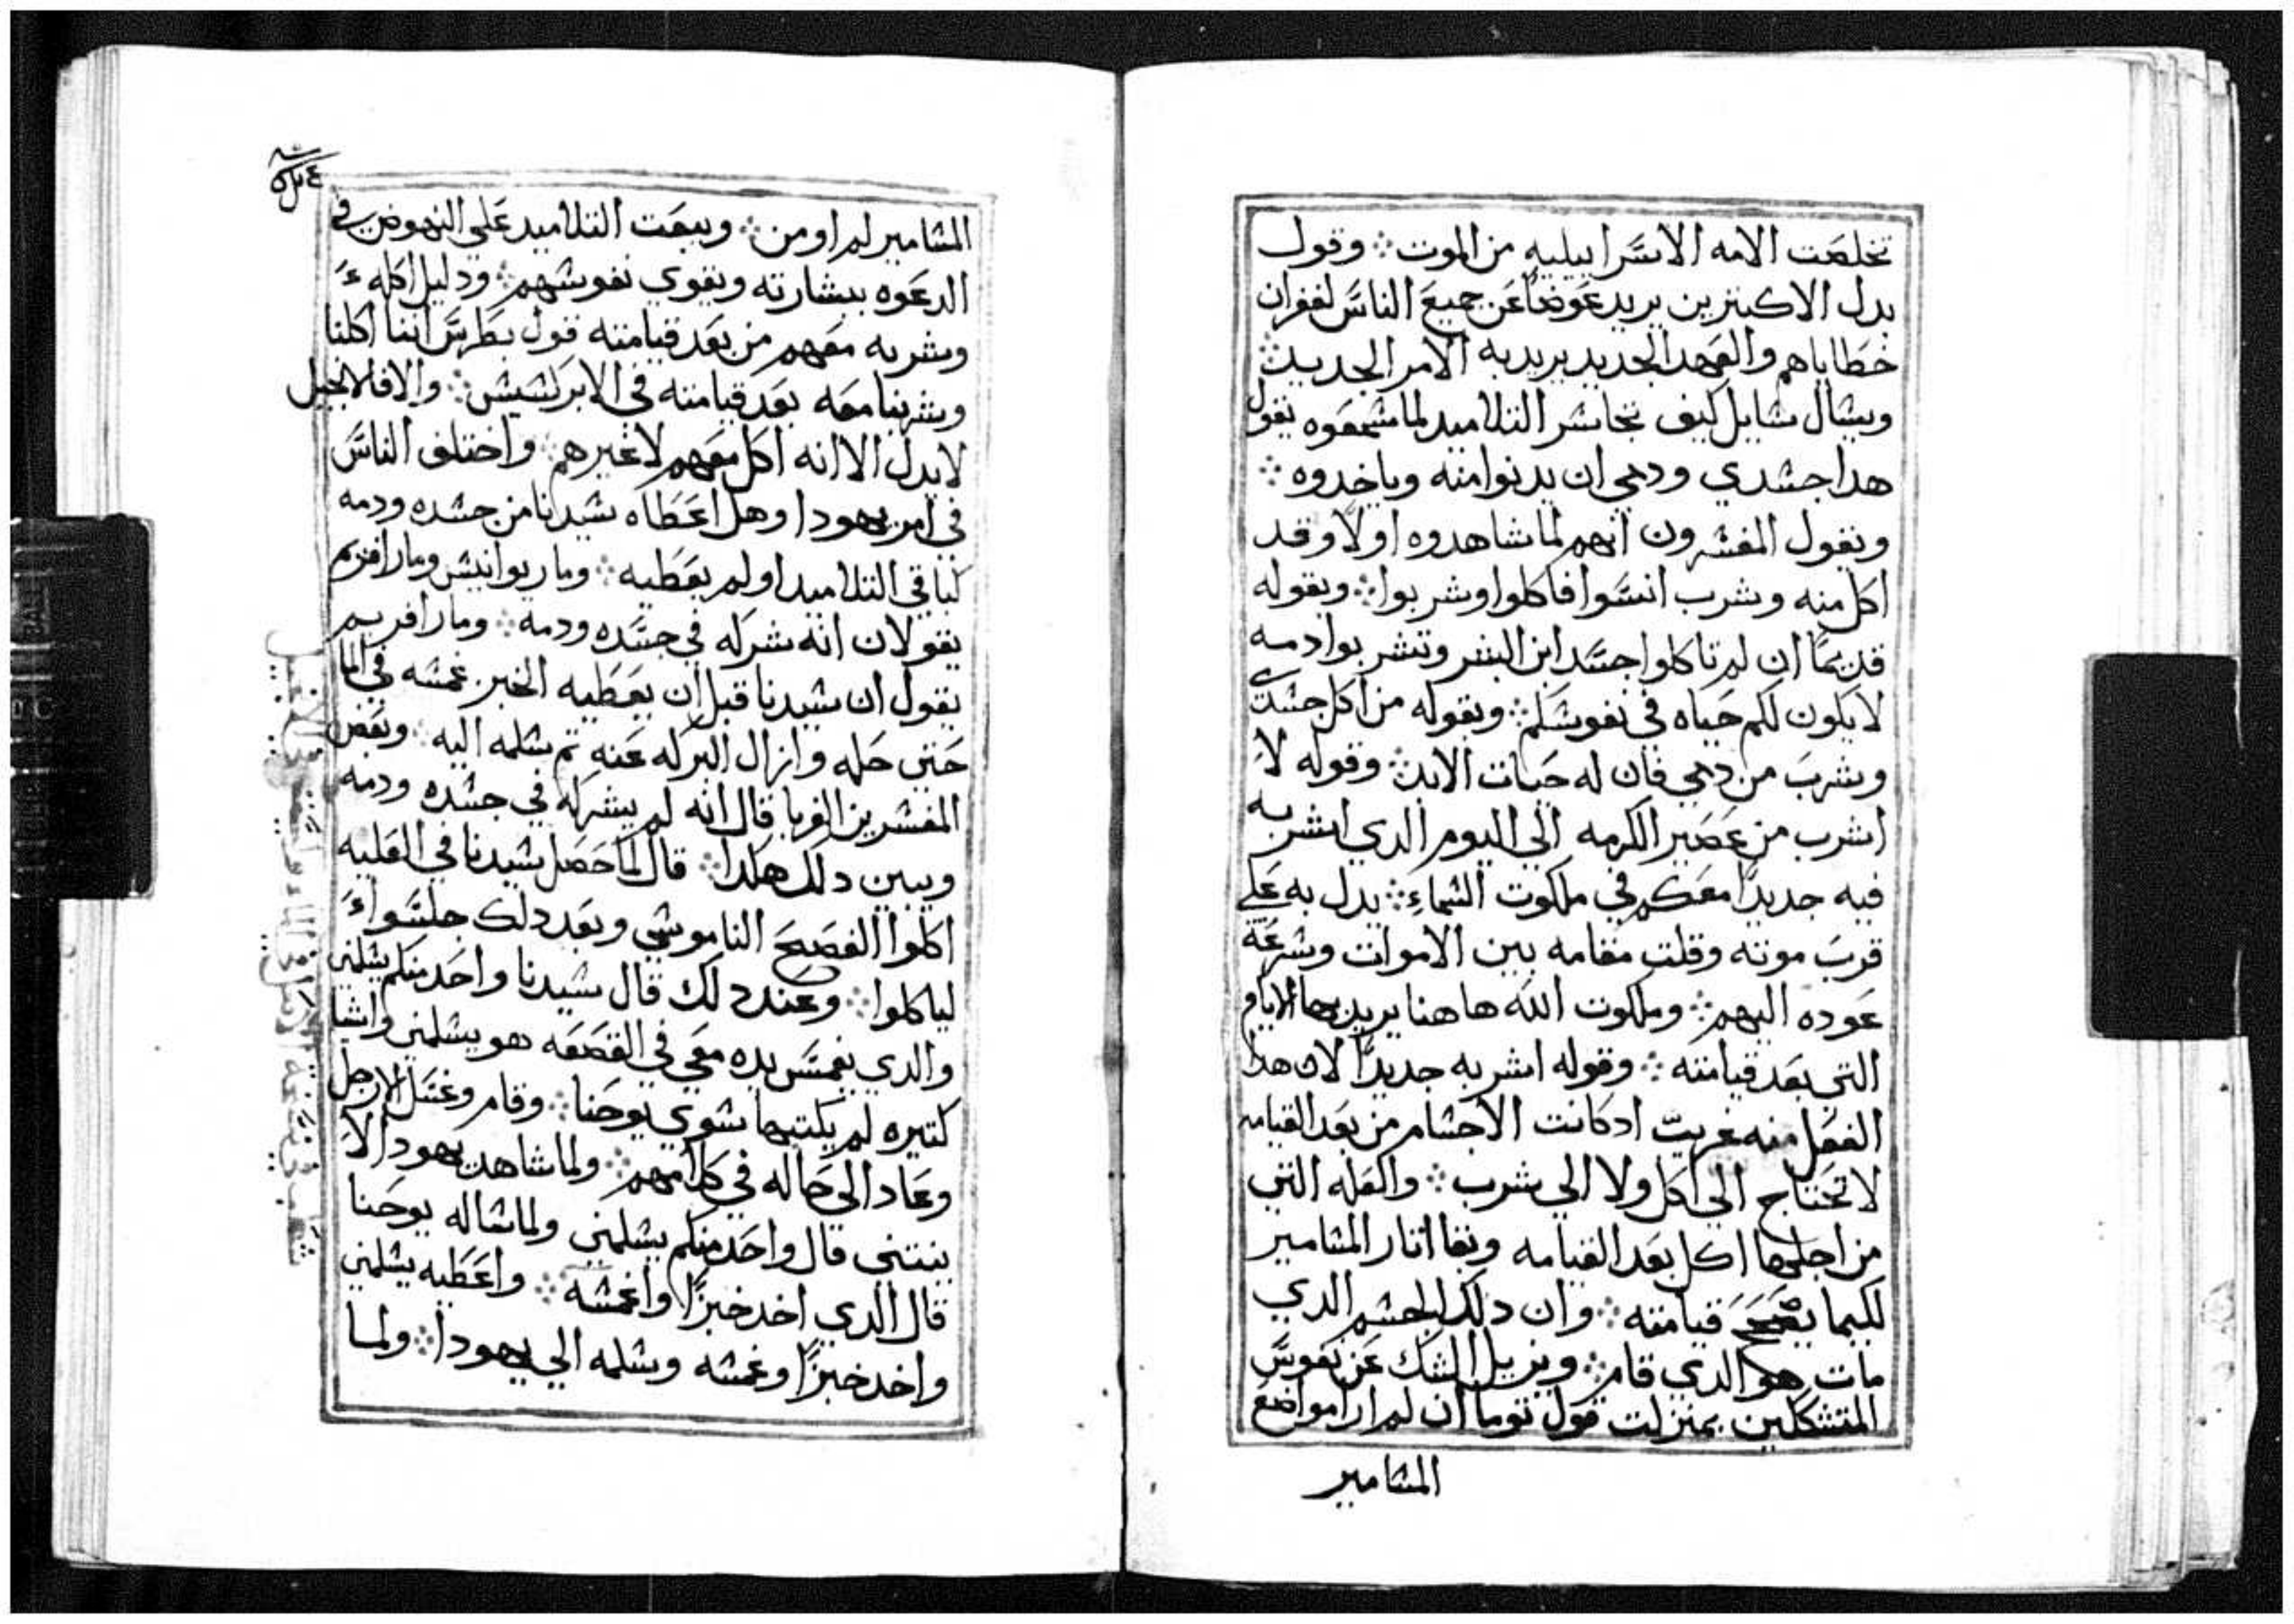 تخلصت الامه الاسراييليه من الموت ܀ وقول
بدل الاكتيرين يريد عوضاً عن جميع الناس لغفران
خطاياهم والعهد الجديد يريد به الامر الجديد ܀
ويسال سايل كيف تجاسر التلاميد لما سمعوه يقول
هدا جسدي ودمي ان يدنوا منه وياخدوه ܀
ونقول المفسرون انهم لما شاهدوه اولاً وقد
اكل منه وشرب انسوا فاكلوا وشربوا ܀ وبقوله
قديماً ان لم تاكلوا جسد ابن البشر وتشربوا دمه
لا يكون لكم حياه في نفوسكم ܀ وبقوله من اكل جسدي
وشرب من دمي فان له حيات الابد ܀ وقوله لا
اشرب من عصير الكرمه الي اليوم الدي اشربه
فيه جديداً معكم في ملكوت السماء ܀ يدل به علي
قرب موته وقلت مقامه بين الاموات وسرعة
عوده اليهم ܀ وملكوت الله هاهنا يريد بها الايام
التي بعد قيامته ܀ وقوله اشربه جديداً لان هدا
الفعل منه غريب ادكانت الاجسام من بعد القيامه
لا تحتاج الي اكل ولا الي شرب ܀ والعله التي
من اجلها اكل بعد القيامه وبقا اتار المسامير
لكيما يصحح قيامته ܀ وان دلك الجسم الدي
مات هو الدي قام ܀ ويزيل الشك عن نفوس
المتشككين بمنزلت قول توما ان لم ارا مواضع
المسامير
المسامير لم اومن ܀ ويبعت التلاميد علي النهوض في
الدعوه ببشارته ويقوي نفوسهم ܀ ودليل اكله
وشربه معهم من بعد قيامته قول بطرس اننا اكلنا
وشربنا معه بعد قيامته في الابركسيس ܀ والا فالانجيل
لا يدل الا انه اكل معهم لا غيرهم ܀ واختلف الناس
في امر يهودا وهل اعطاه سيدنا من جسده ودمه
كباقي التلاميد او لم يعطيه ܀ ومار يوانيس ومار افريم
يقولان انه شركه في جسده ودمه ܀ ومار افريم
يقول ان سيدنا قبل ان يعطيه الخبز غمسه في الما
حتي حله وازال البركه عنه تم سلمه اليه ܀ وبعض
المفسرين الغربا قال انه لم يشركه في جسده ودمه
ويبين دلك هكدا ܀ قال لما حصل سيدنا في العليه
اكلوا الفصح الناموسي وبعد دلك جلسوا
لياكلوا ܀ وعند دلك قال سيدنا واحد منكم يسلمني
والدي يغمس يده معي في القصعه هو يسلمني واشيا
كتيره لم يكتبها سوي يوحنا ܀ وقام وغسل الارجل
وعاد الي حاله في كلامهم ܀ ولما شاهد يهودا لا
ينتني قال واحد منكم يسلمني ولما ساله يوحنا
قال الدي اخد خبزاً واغمسه ܀ واعطيه يسلمني
واخد خبزاً وغمسه وسلمه الي يهودا ܀ ولما